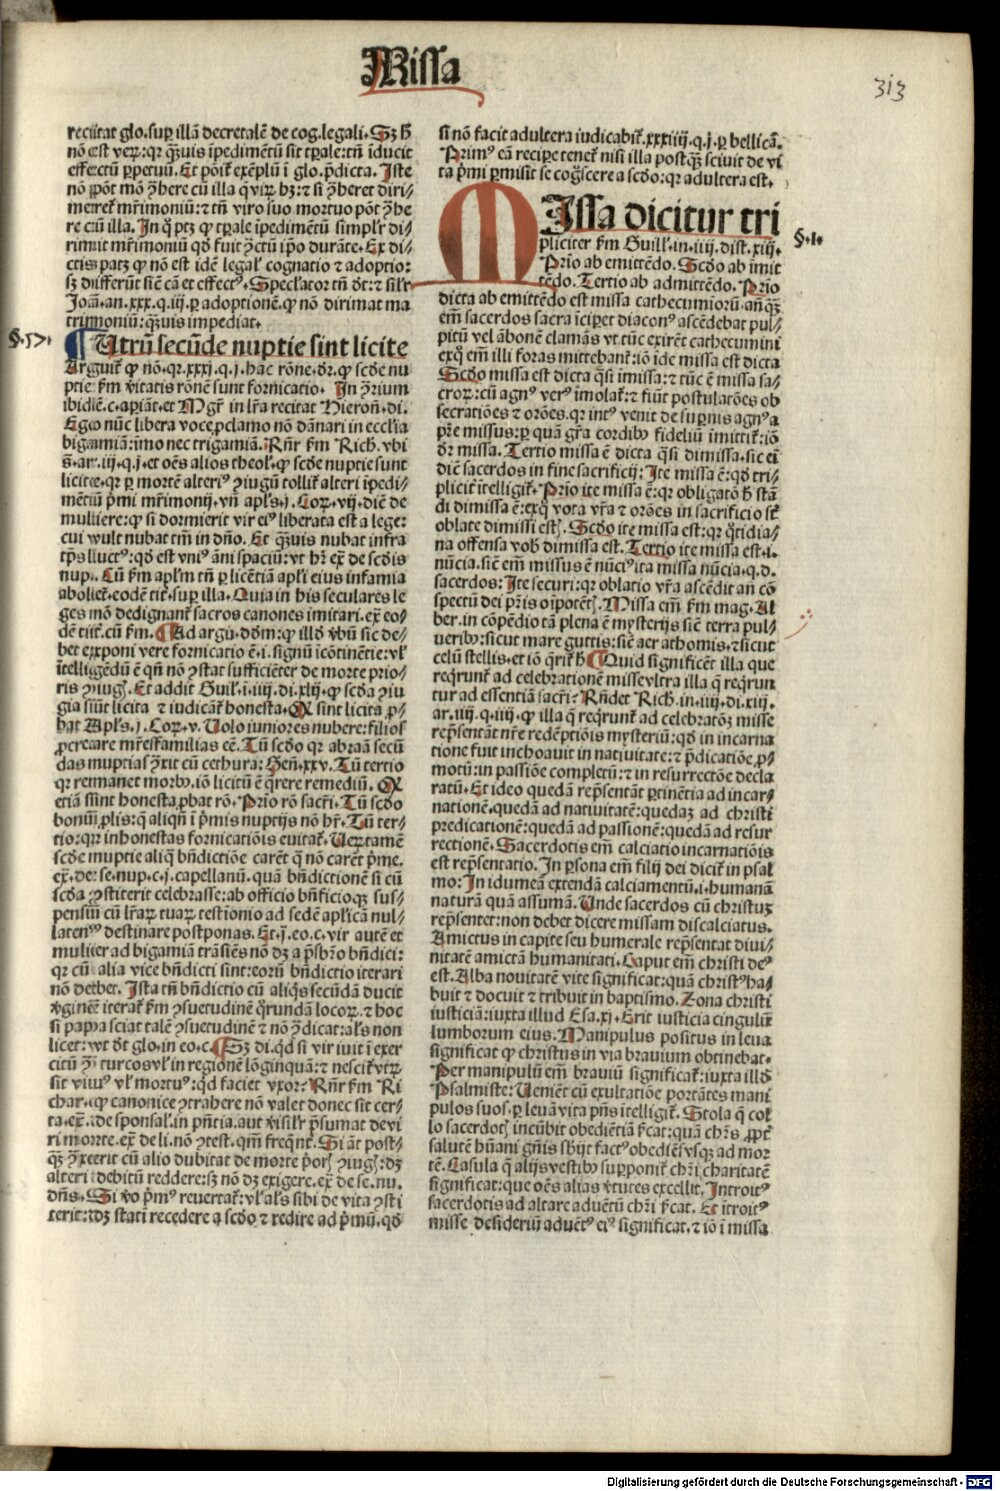 Missa
313
recitat glo. sup illā decretalē de cog. legali. Sz h̄
nō est veꝝ: qr q̄zuis īpedimētū sit tꝑale: tn̄ īducit
effectū ꝑpetuū. Et pōit exēplū ī glo. p̄dicta. Iste
nō ꝓōt mō ꝯhere cū illa q̄ viꝝ hz: ⁊ si ꝯheret diri⸗
meret mr̄imoniū: ⁊ tn̄ viro suo mortuo pōt ꝯhe
re cū illa. In q̄ ptz ꝙ tꝑale īpedimētū simplr̄ di⸗
rimit mr̄imoniū qd̄ fuit ꝯctū ip̄o durāte. Ex di⸗
ctis patz ꝙ nō est idē legal̓ cognatio ⁊ adoptio:
sz differūt siē cā et effectꝰ. Spec̄lator tn̄ d̄t: ⁊ sil̓r
Joā. an. xxx. q. iij. ꝑ adoptionē. ꝙ nō dirimat ma
trimoniū: q̄zuis impediat.
§. 57.
Utrū secūde nuptie sint licite
Arguit̄ ꝙ nō. qr. xxxi. q. j. hac rōne. dr̄. ꝙ scd̄e nu
ptie ẜm ṽitatis rōnē sunt fornicatio. In ꝯrium
ibidē. c. apiāt. et Mgr̄ in lr̄a recitat Hieron̄. di.
Ego nūc libera voce ꝓclamo nō dānari in eccl̄ia
bigamiā: imo nec trigamiā. Rn̄r ẜm Rich. vbi
s̄. ar. iij. q. j. et oēs alios theol̓. ꝙ scd̄e nuptie sunt
licite. qr ꝑ mortē alteriꝰ ꝯiugū tollit̄ alteri īpedi⸗
mētū p̄mi mr̄imonij. vn̄ apls̄. j. Coꝝ. vij. diē de
muliere: ꝙ si dormierit vir eiꝰ liberata est a lege:
cui vult nubat tm̄ in dn̄o. Et q̄zuis nubat infra
tp̄s luctꝰ: qd̄ est vniꝰ āni spaciū: vt hr̄ ex̄ de scd̄is
nup. Cū ẜm apl̄m tn̄ ꝑ licētiā apl̓i eius infamia
abolet̄. eodē tit̄. suꝑ illa. Quia in his seculares le
ges nō dedignant̄ sacros canones imitari. ex̄ eo⸗
dē tit̄. cū ẜm. Ad argu. dd̄m: ꝙ illd̄ vbū siē de⸗
bet exponi vere fornicatio ē. i. signū īcōtinētie: vl̓
ītelligēdū ē qn̄ nō ꝯstat sufficiēter de morte prio⸗
ris ꝯiugꝭ. Et addit Guil̓. ī. iiij. di. xlij. ꝙ scd̄a ꝯiu
gia sūt licita ⁊ iudicāt̄ honesta. Ꝙ sint licita ꝓ⸗
bat Apls̄. j. Coꝝ. v. Volo iuniores nubere: filios
ꝓcreare mr̄esfamilias eē. Tū scd̄o qr abraā secū
das nuptias ꝯxit cū cethura: Gen̄. xxv. Tū tertio
qr remanet morbꝰ. iō licitū ē q̄rere remediū. Ꝙ
etiā sint honesta ꝓbat rō. Prīo rō sacr̄i. Tū scd̄o
bonū ꝓlis: q̄ aliqn̄ ī p̄mis nuptijs nō hr̄. Tū ter⸗
tio: qr inhonestas fornicatiōis euitat̄. Ueꝝtamē
scd̄e nuptie aliq̄ bn̄dictiōe carēt q̄ nō carēt p̄me.
ex̄. de. se. nup. c. j. capellanū. quā bn̄dictionē si cū
scd̄a ꝯstiterit celebrasse: ab officio bn̄ficioqꝫ sus⸗
pensū cū lr̄aꝝ tuaꝝ testionio ad sedē aplicā nul⸗
latenꝰ destinare postponas. Et. j. eo. c. vir autē et
mulier ad bigamiā trāsiēs nō dz a p̄sbr̄o bn̄dici:
qr cū alia vice bn̄dicti sint: eorū bn̄dictio iterari
nō debet. Ista tn̄ bn̄dictio cū aliq̄s secūdā ducit
v̄ginē iterat̄ ẜm ꝯsuetudinē q̄rundā locoꝝ. ⁊ hoc
si papa sciat talē ꝯsuetudinē ⁊ nō ꝯdicat: al̓s non
licet: vt d̄t glo. in eo. c. Sz di. qd̄ si vir iuit ī exer
citū ꝯ̄ turcos vl̓ in regionē lōginquā: ⁊ nescit̄ vtꝝ
sit viuꝰ vl̓ mortuꝰ: qd̄ faciet vxor? Rn̄r ẜm Ri
char. ꝙ canonice ꝯtrahere nō valet donec sit cer⸗
ta. ex̄. de sponsal̓. in p̄ntia. aut v̄isil̓r p̄sumat de vi
ri morte. ex̄ de li. nō ꝯtest. qm̄ freq̄nt̄. Si āt post⸗
q̄z ꝯxerit cū alio dubitat de morte p̄oris ꝯiugꝭ: dz
alteri debitū reddere: sz nō dz exigere. ex̄ de se. nu.
dn̄s. Si v̄o p̄mꝰ reuertat̄: vl̓ al̓s sibi de vita ꝯsti
terit: dz statī recedere a scd̄o ⁊ redire ad p̄mū. qd̄
si nō facit adultera iudicabit̄. xxxiiij. q. j. ꝑ bellicā.
Primꝰ eā reciꝑe tenet̄ nisi illa postq̄z sciuit de vi
ta p̄mi ꝑmisit se coḡscere a scd̄o: qr adultera est.
§. 1.
MIssa dicitur tri
pliciter ẜm Guill̓. in. iiij. dist. xiij.
Prīo ab emittēdo. Scd̄o ab imit
tēdo. Tertio ab admittēdo. Prīo
dicta ab emittēdo est missa cathecumiorū: an̄q̄z
em̄ sacerdos sacra īcipet diaconꝰ ascēdebat pul⸗
pitū vel ābonē clamās vt tūc exirēt cathecumini
exq̄ em̄ illi foras mittebant̄: iō īde missa est dicta
Scd̄o missa est dicta q̄si īmissa: ⁊ tūc ē missa sa⸗
croꝝ: cū agnꝰ verꝰ imolat̄: ⁊ fiūt postulatōes ob
secratiōes ⁊ orōes. qr intꝰ venit de supernis agnꝰ a
p̄re missus: ꝑ quā gr̄a cordibꝰ fideliū īmittit̄: iō
dr̄ missa. Tertio missa ē dicta q̄si dimissa. sic ei
diē sacerdos in fine sacrificij: Ite missa ē: qd̄ tri⸗
plicit̄ ītelligit̄. Prīo ite missa ē: qr obligatō h̄ stā
di dimissa ē: exq̄ vota vr̄a ⁊ orōes in sacrificio st̄
oblate dimissi estꝭ. Scd̄o ite missa est: qr q̄tidia⸗
na offensa vob̄ dimissa est. Tertio ite missa est. i.
nūcia. siē em̄ missus ē nūciꝰ ita missa nūcia. q. d.
sacerdos: Ite securi: qr oblatio vr̄a ascēdit an̄ cō
spectū dei pr̄is oīpotētꝭ. Missa em̄ ẜm mag. Al
ber. in cōpēdio tā plena ē mysterijs siē terra pul⸗
ueribꝰ: sicut mare guttis: siē aer athomis. ⁊ sicut
celū stellis. et iō q̄rit̄ h̄ Quid significēt illa que
reqrunt̄ ad celebrationē misse vltra illa q̄ reqrun
tur ad essentiā sacr̄i? Rn̄det Rich. in. iiij. di. xiij.
ar. iiij. q. iij. ꝙ illa q̄ reqrunt̄ ad celebratōz misse
repn̄tant nr̄e redēptiōis mysteriū: qd̄ in incarna
tione fuit inchoauit in natiuitate: ⁊ p̄dicatiōe p̄⸗
motū: in passiōe completū: ⁊ in resurrectōe decla
ratū. Et ideo quedā rep̄sentāt ꝑtinētia ad incar⸗
nationē. quedā ad natiuitatē: quedaz ad christi
predicationē: quedā ad passionē: quedā ad resur
rectionē. Sacerdotis em̄ calciatio incarnatiōis
est rep̄sentatio. In ꝑsona em̄ filij dei dicit̄ in psal
mo: In idumeā extendā calciamentū. i. humanā
naturā quā assumā. Unde sacerdos cū christuz
rep̄senter: non debet dicere missam discalciatus.
Amictus in capite seu humerale rep̄sentat diui⸗
nitatē amictā humanitati. Caput em̄ christi deꝰ
est. Alba nouitatē vite significat: quā christꝰ ha⸗
buit ⁊ docuit ⁊ tribuit in baptismo. Zona christi
iusticiā: iuxta illud Esa. xj. Erit iusticia cingulū
lumborum eius. Manipulus positus in leua
significat ꝙ christus in via brauium obtinebat.
Per manipulū em̄ brauiū significat̄: iuxta illd̄
Psalmiste: Ueniēt cū exultatiōe portātes mani
pulos suos. ꝑ leuā vita p̄ns ītelligit̄. Stola q̄ col
lo sacerdotꝭ incūbit obediētiā ẜcat: quā chr̄s ꝓpt̄
salutē hūani gn̄is sb̓ijt factꝰ obediēs vsqꝫ ad mor
tē. Casula q̄ alijs vestibꝰ suꝑponit̄ chr̄i charitatē
significat: que oēs alias v̄tutes excellit. Introitꝰ
sacerdotis ad altare aduētū chr̄i ẜcat. Et ītroitꝰ
misse desideriū aduētꝰ eiꝰ significat. ⁊ iō ī missa
Digitalisierung gefördert durch die Deutsche Forschungsgemeinschaft - DFG